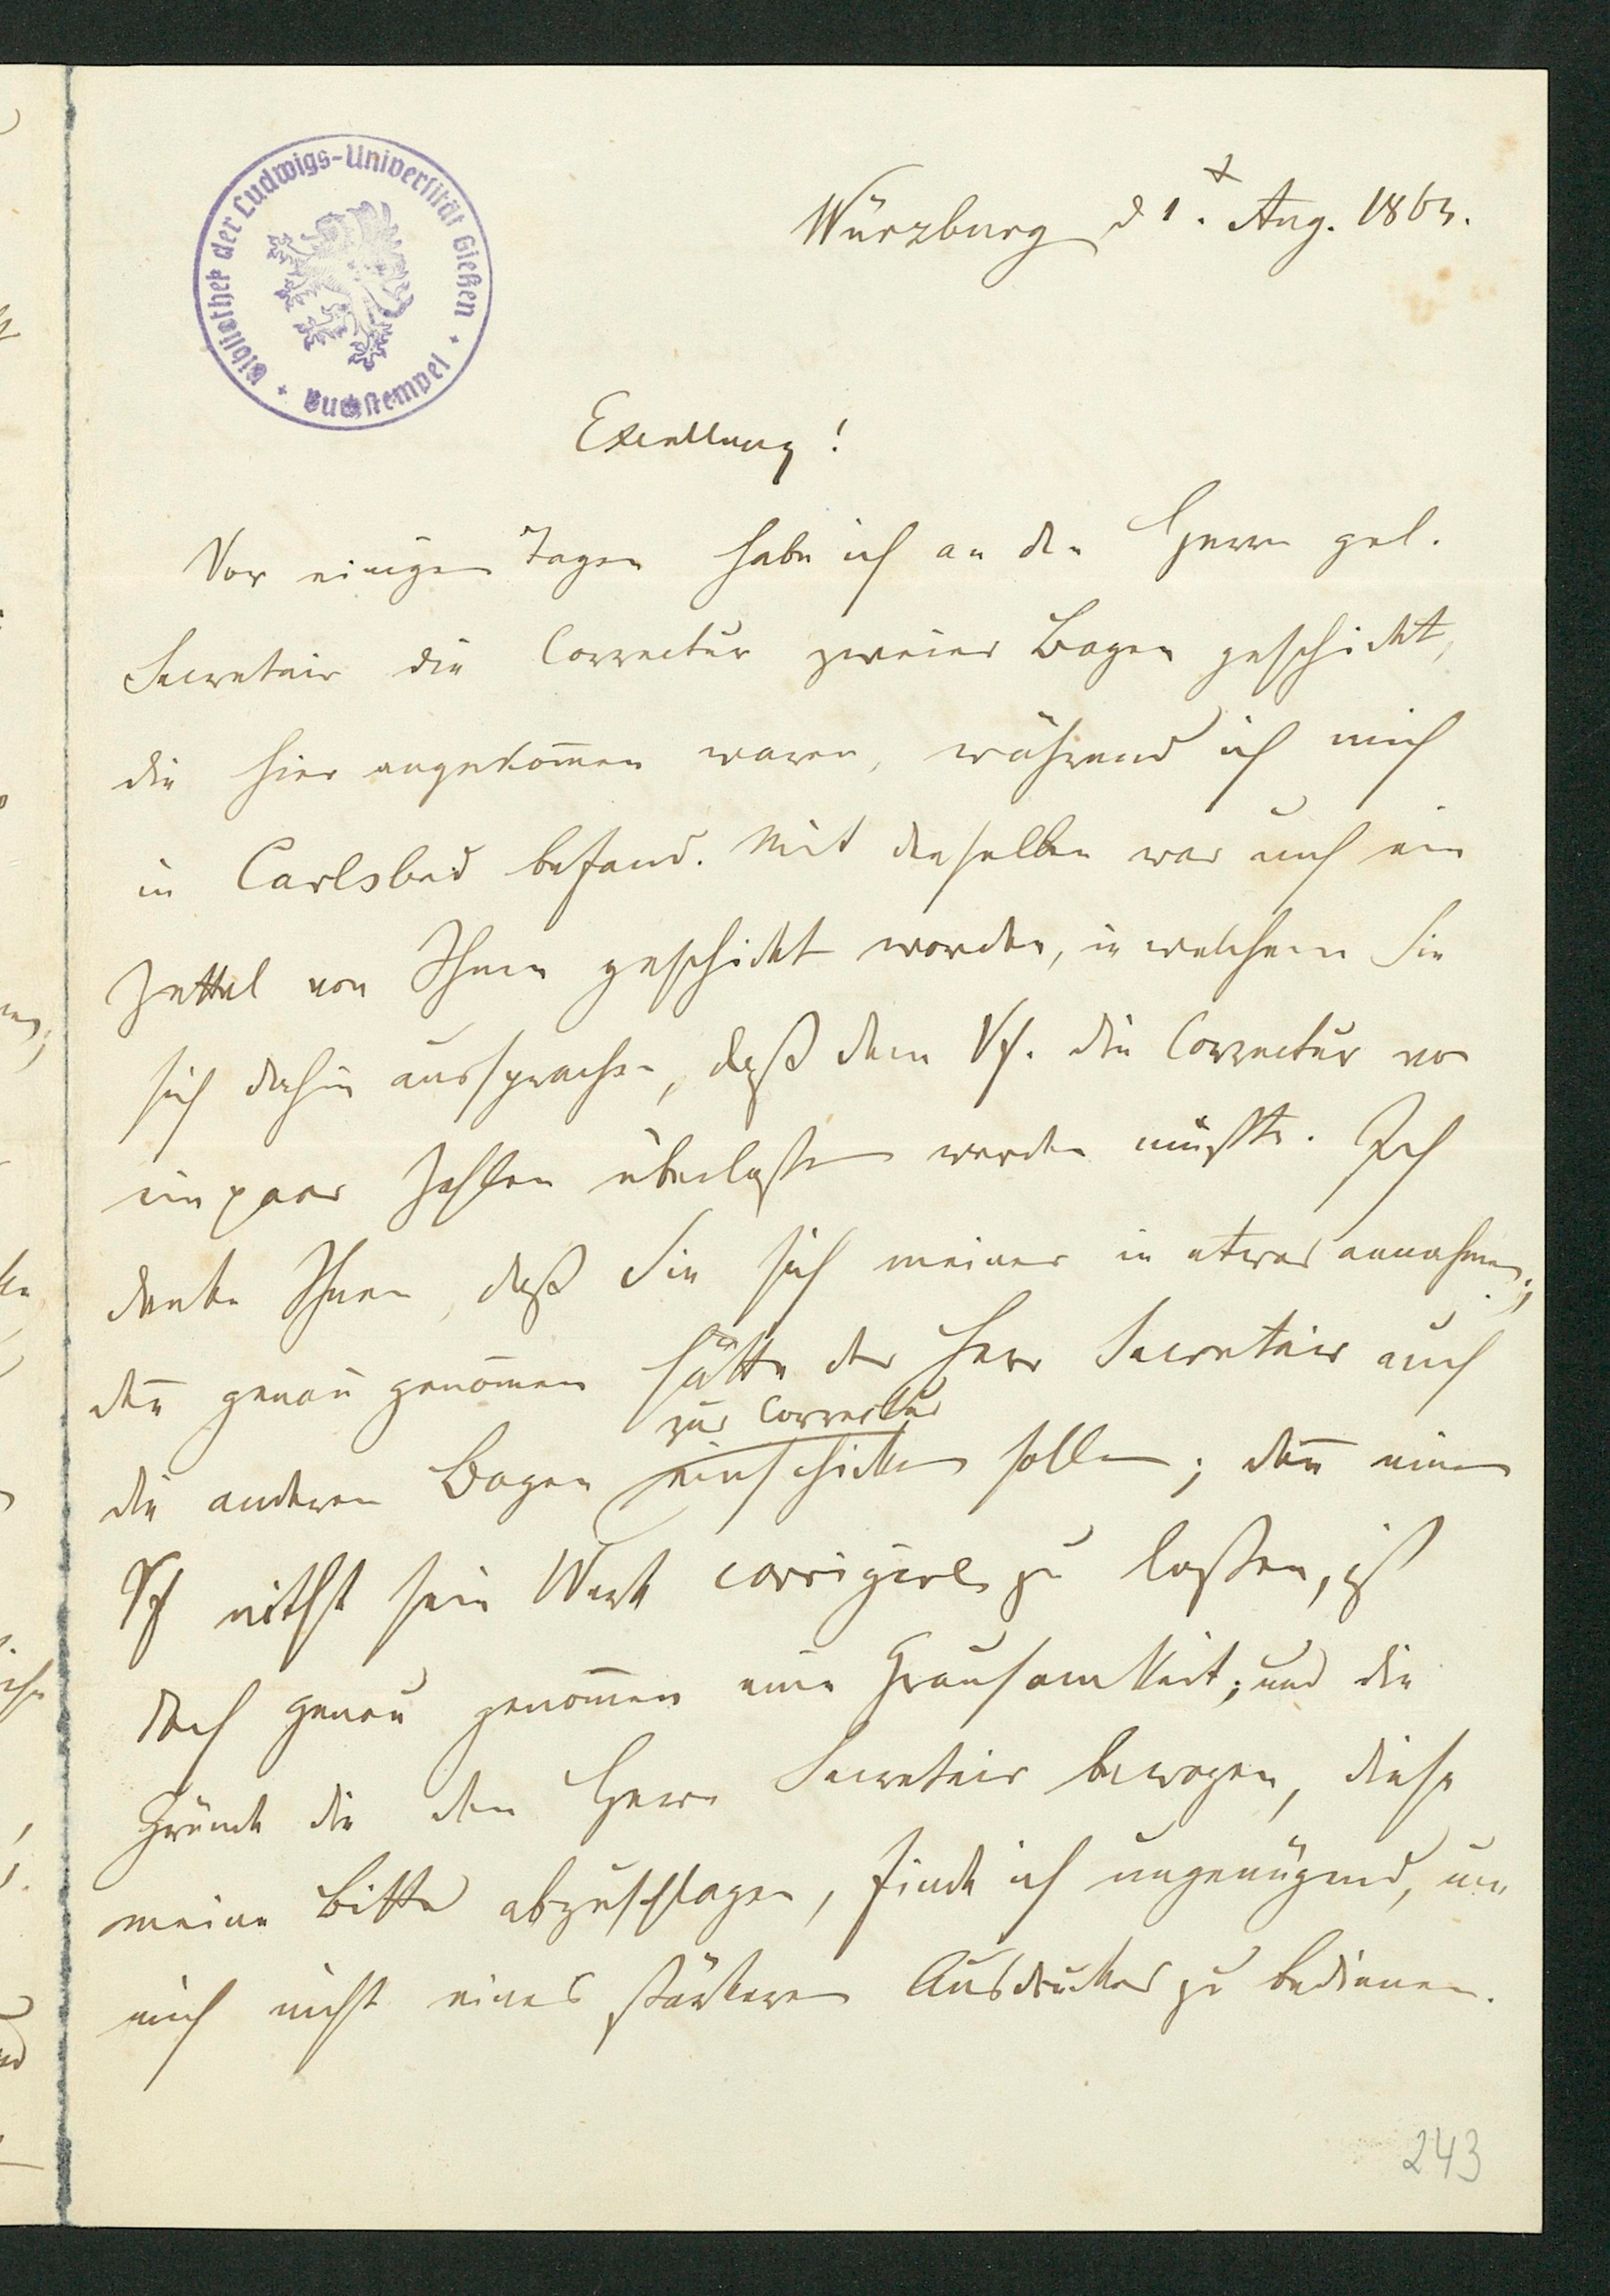 Bibliothek der Ludwigs-Universität Gießen
Buchstempel
Würzburg d 1. Aug. 1863.
Excellenz!
Vor einigen Tagen habe ich an den Herrn gel.
Secretair die Correctur zweier Bogen geschickt,
die hier angekom̄en waren, während ich mich
in Carlsbad befand. Mit denselben war auch ein
Zettel von Ihnen geschickt worden, in welchem Sie
sich dahin aussprachen, daß dem Vf. die Correctur von
ein paar Zahlen überlassen werden müßte. Ich
danke Ihnen, daß Sie sich meiner in etwas annahmen;
den̄ genau genom̄en hätte der Herr Secretair auch
zur Correctur
die anderen Bogen einschicken sollen; den̄ einen
Vf nicht sein Werk corrigiren zu laßen, ist
doch genau genom̄en eine Grausamkeit; und die
Gründe die den Herrn Secretair bewogen, diese
meine Bitte abzuschlagen, finde ich ungenügend, um
mich nicht eines stärkeren Ausdruckes zu bedienen.
243